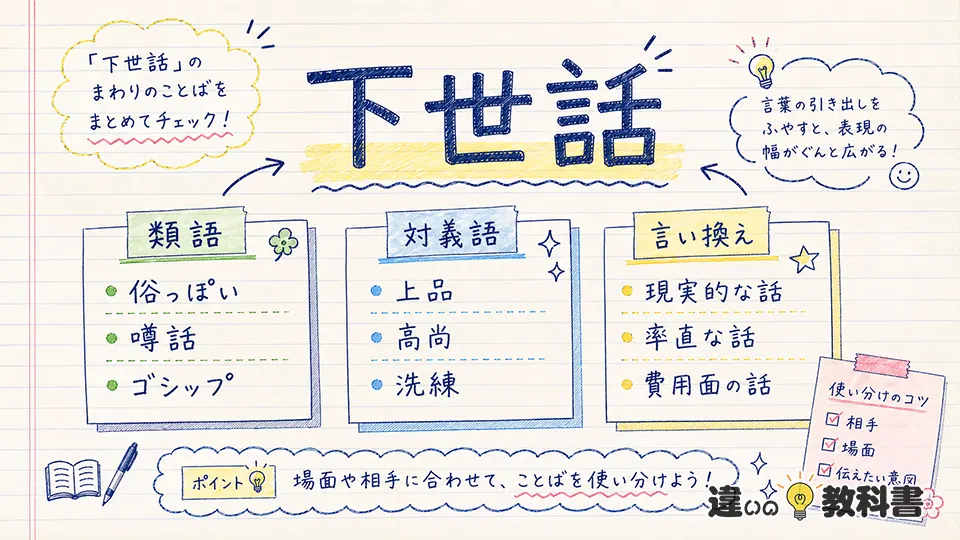 「下世話」の
まわりのことばを
まとめてチェック！
下世話
言葉の引き出しを
ふやすと、表現の
幅がぐんと広がる！
類語
俗っぽい
噂話
ゴシップ
対義語
上品
高尚
洗練
言い換え
現実的な話
率直な話
費用面の話
使い分けのコツ
相手
場面
伝えたい意図
ポイント
場面や相手に合わせて、ことばを使い分けよう！
違いの教科書